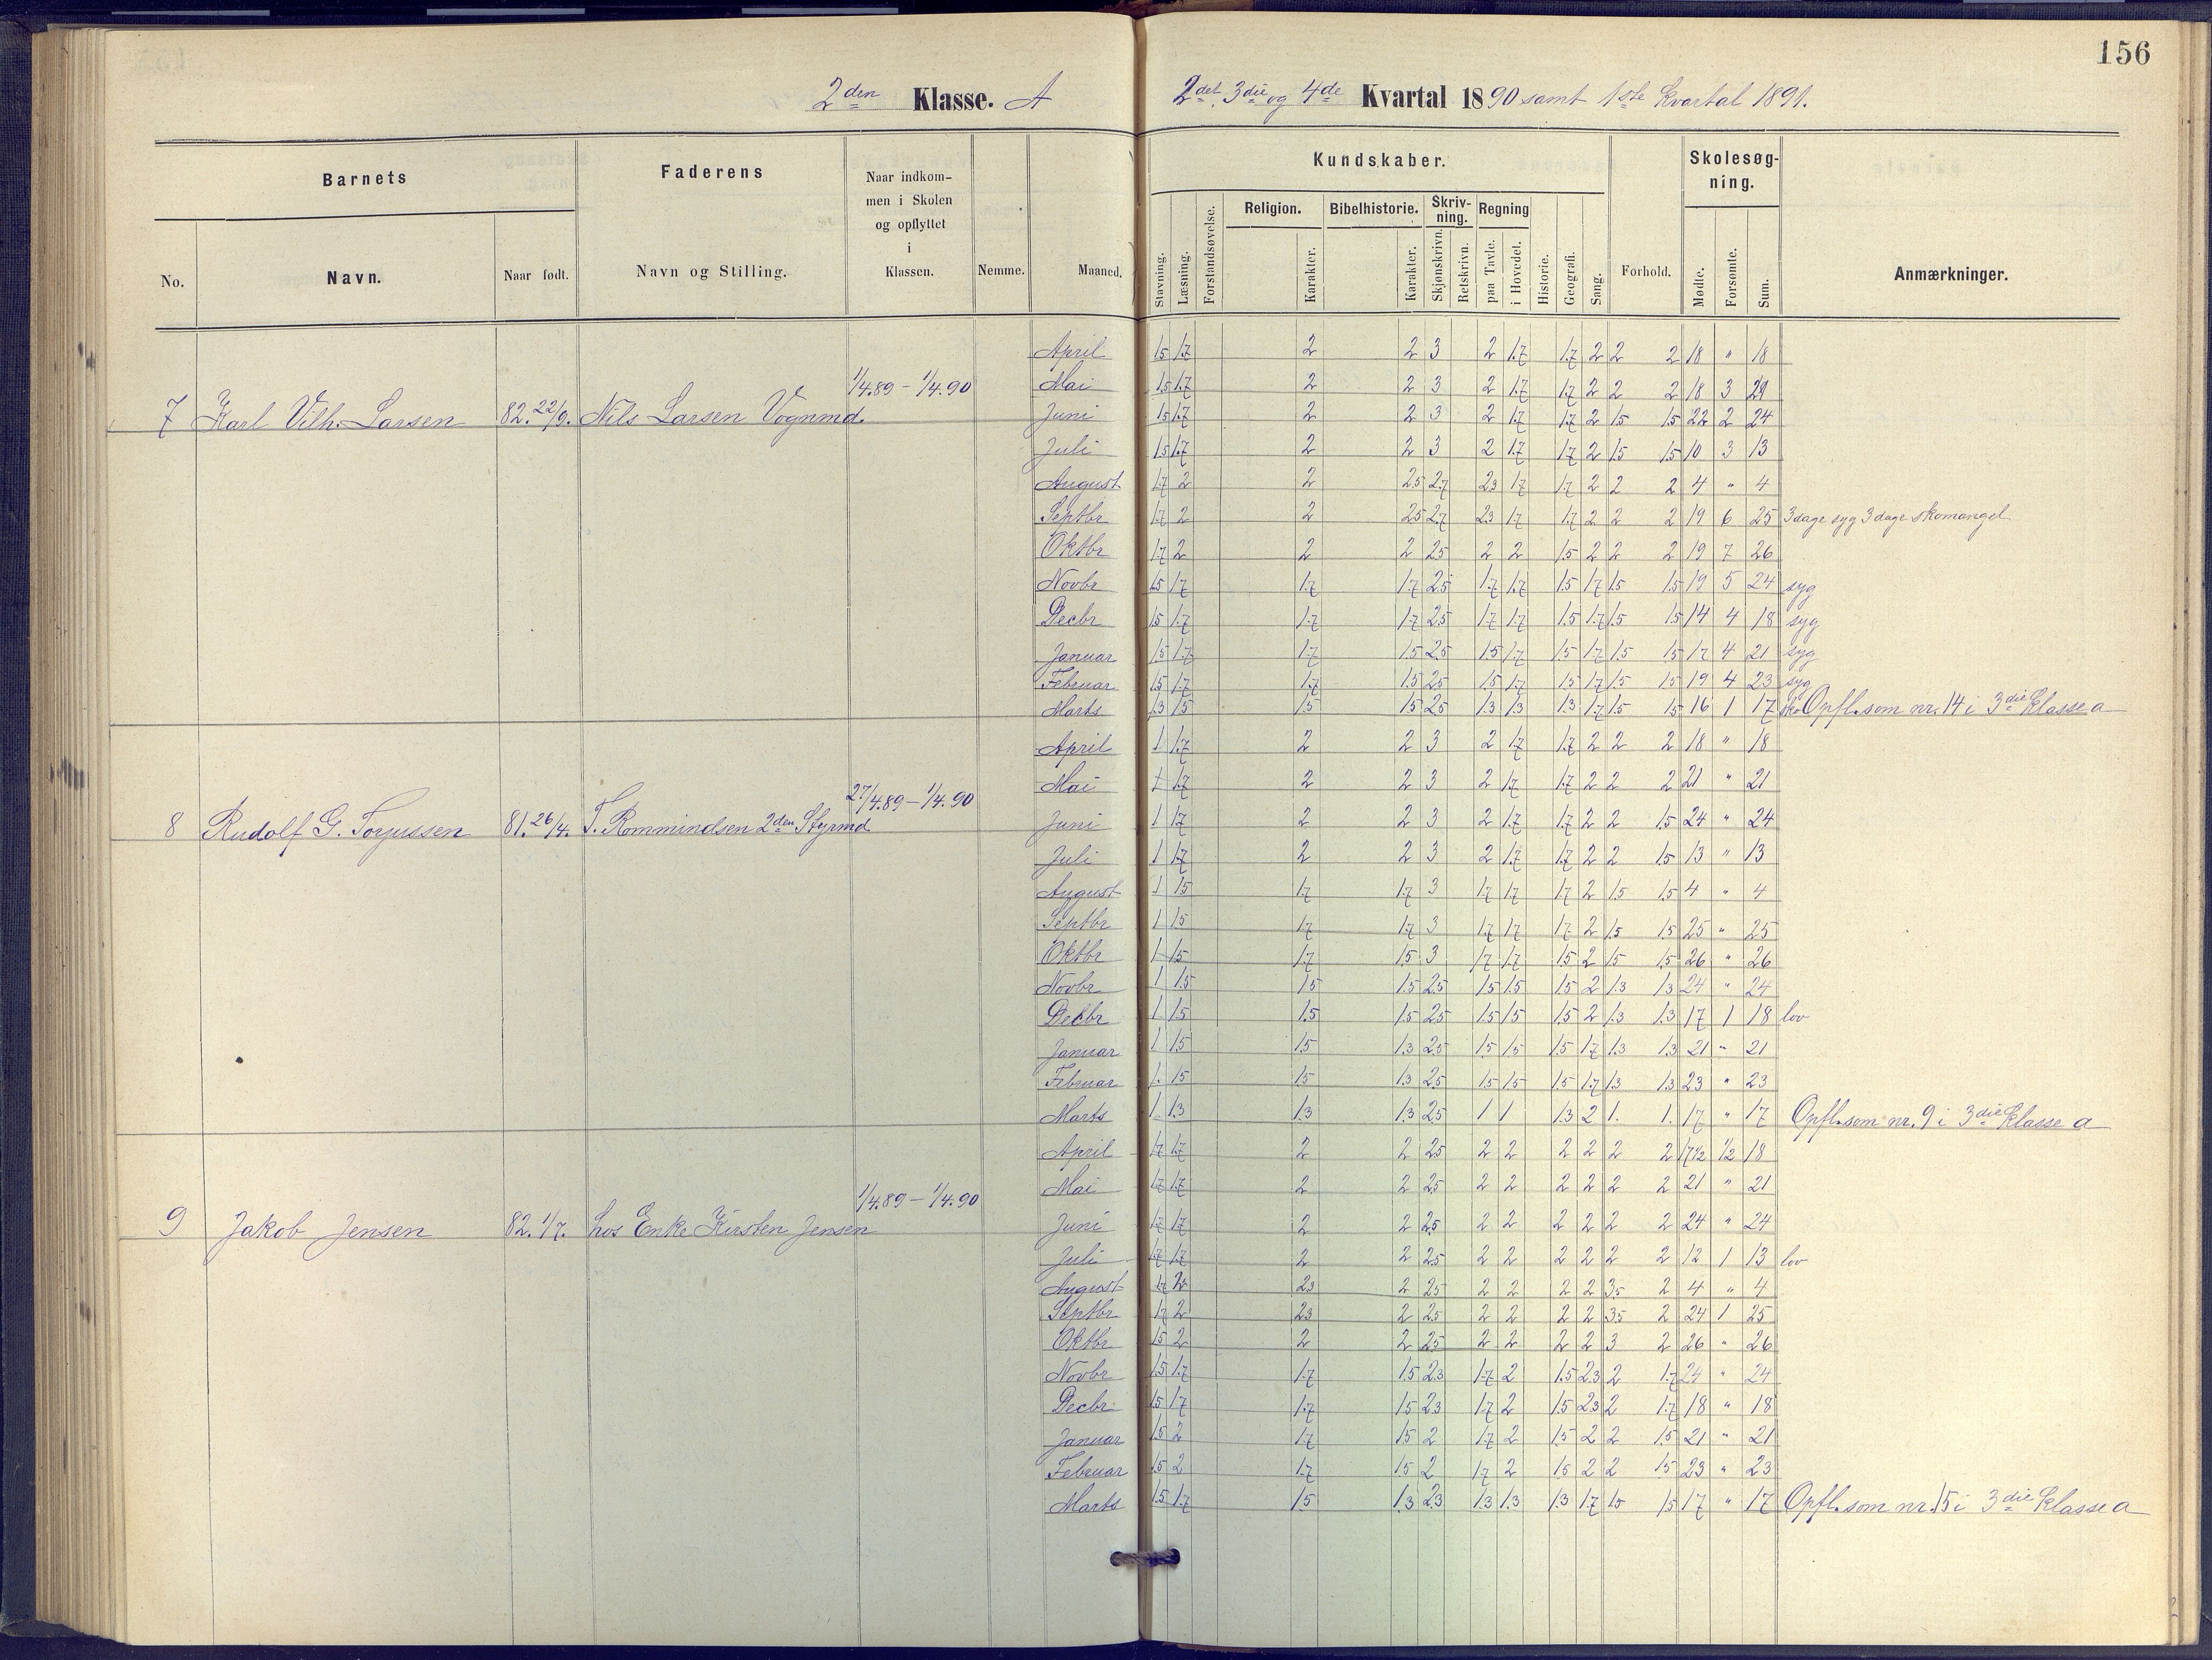 156
2den Klasse. A 2det, 3die og 4de Kvartal 1890 samt 1ste Kvartal 1891.
Barnets Faderens Naar indkommen i Skolen og opflyttet i Klassen. Nemme. Maaned. Kundskaber. Forhold. Skolesøgning. Anmærkninger.
No. Navn. Naar født. Navn og Stilling.
Stavning. Læsning. Forstandsøvelse. Religion. Karakter. Bibelhistorie. Karakter. Skrivning. Skjønskrivn. Retskrivn. Regning paa Tavle. i Hovedet. Historie. Geografi. Sang. Mødte. Forsømte. Sum.
April 1.5 1.7 2 2 3 2 1.7 1.7 2 2 2 18 " 18
1/4.89 - 1/4.90 Mai 1.5 1.7 2 2 3 2 1.7 1.7 2 2 2 18 3 21
7 Karl Vilh. Larsen 82. 22/9. Nils Larsen Vognmd. Juni 1.5 1.7 2 2 3 2 1.7 1.7 2 1.5 1.5 22 2 24
Juli 1.5 1.7 2 2 3 2 1.7 1.7 2 1.5 1.5 10 3 13
August 1.7 2 2 2.5 2.7 2.3 1.7 1.7 2 2 2 4 " 4
Septbr 1.7 2 2 2.5 2.7 2.3 1.7 1.7 2 2 2 19 6 25 3 dage syg 3 dage skomangel
Oktbr 1.7 2 2 2 2.5 2 2 1.5 2 2 2 19 7 26
Novbr 1.5 1.7 1.7 1.7 2.5 1.7 1.7 1.5 1.7 1.5 1.5 19 5 24 syg
Decbr 1.5 1.7 1.7 1.7 2.5 1.7 1.7 1.5 1.7 1.5 1.5 14 4 18 syg
Januar 1.5 1.7 1.7 1.5 2.5 1.5 1.7 1.5 1.7 1.5 1.5 17 4 21 syg
Februar 1.5 1.7 1.7 1.5 2.5 1.5 1.7 1.5 1.7 1.5 1.5 19 4 23 syg
Marts 1.3 1.5 1.5 1.5 2.5 1.3 1.3 1.3 1.7 1.5 1.5 16 1 17 sko Opfl. som nr. 14 i 3die Klasse a
April 1 1.7 2 2 3 2 1.7 1.7 2 2 2 18 " 18
27/4.89 - 1/4.90 Mai 1 1.7 2 2 3 2 1.7 1.7 2 2 2 21 " 21
8 Rudolf G. Torjussen 81. 26/4. T. Rommindsen 2den Styrmd Juni 1 1.7 2 2 3 2 1.7 1.7 2 2 1.5 24 " 24
Juli 1 1.7 2 2 3 2 1.7 1.7 2 2 1.5 13 " 13
August 1 1.5 1.7 1.7 3 1.7 1.7 1.7 2 1.5 1.5 4 " 4
Septbr 1 1.5 1.7 1.7 3 1.7 1.7 1.7 2 1.5 1.5 25 " 25
Oktbr 1 1.5 1.7 1.5 3 1.7 1.7 1.5 2 1.5 1.5 26 " 26
Novbr 1 1.5 1.5 1.5 2.5 1.5 1.5 1.5 2 1.3 1.3 24 " 24
Decbr 1 1.5 1.5 1.5 2.5 1.5 1.5 1.5 2 1.3 1.3 17 1 18 lov
Januar 1 1.5 1.5 1.3 2.5 1.5 1.5 1.5 1.7 1.3 1.3 21 " 21
Februar 1. 1.5 1.5 1.3 2.5 1.5 1.5 1.5 1.7 1.3 1.3 23 " 23
Marts 1 1.3 1.3 1.3 2.5 1 1 1.3 2 1. 1. 17 " 17 Opfl. som nr. 9 i 3die Klasse a
April 1.7 1.7 2 2 2.5 2 2 2 2 2 2 17½ ½ 18
1/4.89 - 1/4.90 Mai 1.7 1.7 2 2 2.5 2 2 2 2 2 2 21 " 21
9 Jakob Jensen 82. 1/7. hos Enke Kirsten Jensen Juni 1.7 1.7 2 2 2.5 2 2 2 2 2 2 24 " 24
Juli 1.7 1.7 2 2 2.5 2 2 2 2 2 2 12 1 13 lov
August 1.7 2 2.3 2 2.5 2 2 2 2 3.5 2 4 " 4
Septbr 1.7 2 2.3 2 2.5 2 2 2 2 3.5 2 24 1 25
Oktbr 1.5 2 2 2 2.5 2 2 2 2 3 2 26 " 26
Novbr 1.5 1.7 1.7 1.5 2.3 1.7 2 1.5 2.3 2 1.7 24 " 24
Decbr 1.5 1.7 1.7 1.5 2.3 1.7 2 1.5 2.3 2 1.7 18 " 18
Januar 1.5 2 1.7 1.5 2 1.7 2 1.5 2 2 1.5 21 " 21
Februar 1.5 2 1.7 1.5 2 1.7 2 1.5 2 2 1.5 23 " 23
Marts 1.5 1.7 1.5 1.3 2.3 1.3 1.3 1.3 1.7 1.5 1.5 17 " 17 Opfl. som nr. 15 i 3die Klasse a